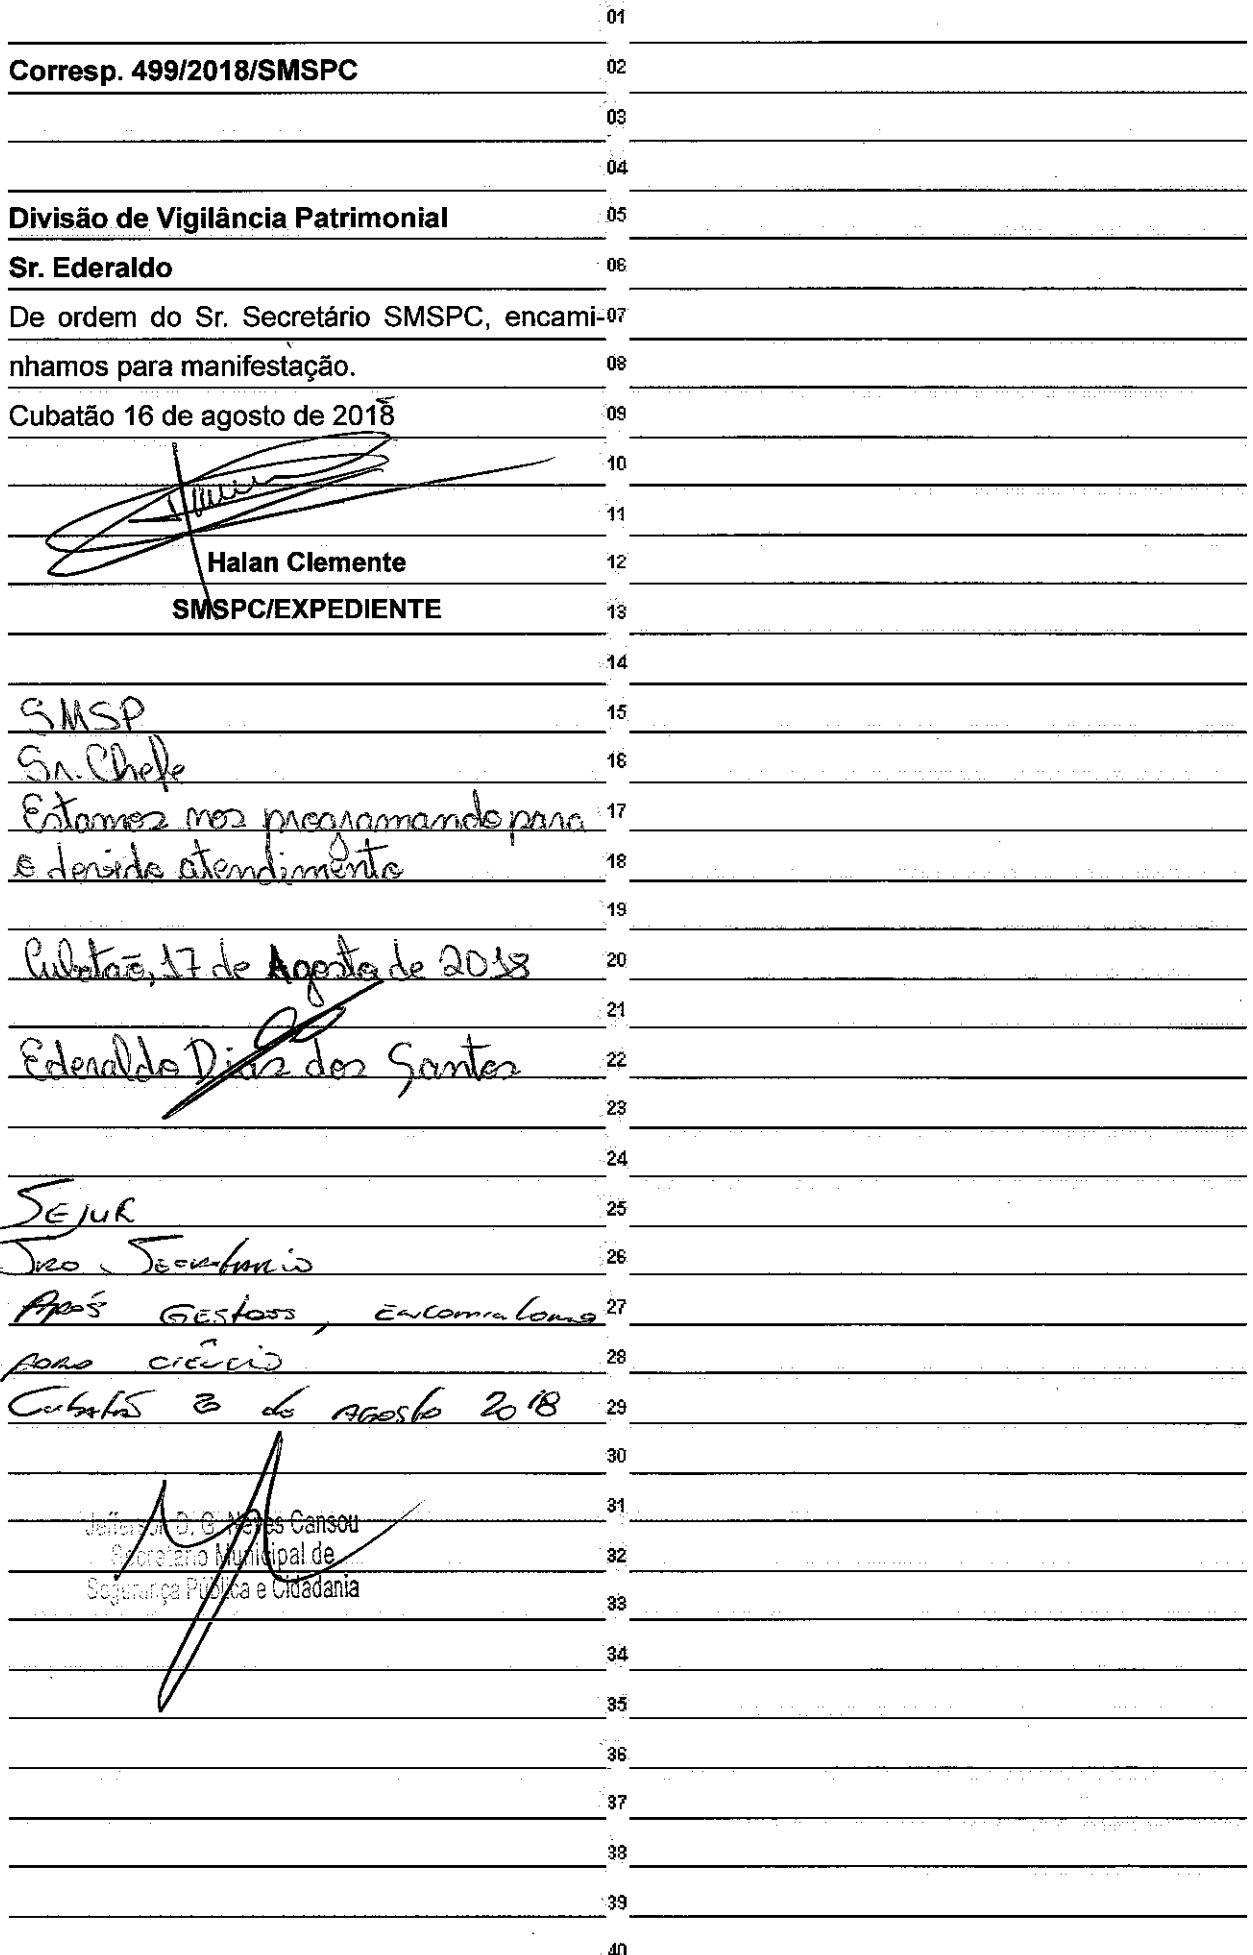 01
Corresp. 499/2018/SMSPC 02
03
04
Divisão de Vigilância Patrimonial 05
Sr. Ederaldo 06
De ordem do Sr. Secretário SMSPC, encami- 07
nhamos para manifestação. 08
Cubatão 16 de agosto de 2018 09
10
11
Halan Clemente 12
SMSPC/EXPEDIENTE 13
14
SMSP 15
Sr. Chefe 16
Estamos nos programando para 17
o devido atendimento 18
19
Cubatão, 17 de Agosto de 2018 20
21
Ederaldo Dias dos Santos 22
23
24
SEJUR 25
Secretario 26
Após 27
para ciência 28
Cubatão de Agosto 2018 29
30
Jefferson D. G. Neves Cansou 31
Secretario Municipal de 32
Segurança Pública e Cidadania 33
34
35
36
37
38
39
40